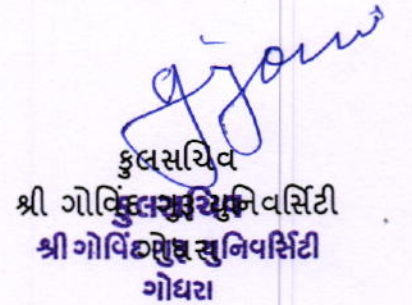 કુલસચિવ
શ્રી ગોવિંદ ગુરુ યુનિવર્સિટી
કુલસચિવ
ગોધરા
શ્રી ગોવિંદ ગુરુ યુનિવર્સિટી
ગોધરા